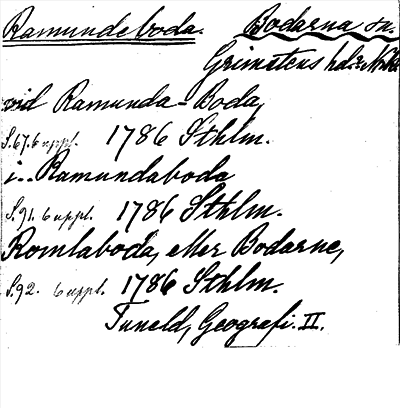 Ramundeboda. Bodarna sn.
Grimstens hd. Nke
vid Ramunda-Boda,
S. 67. 6 uppl. 1786 Sthlm.
i.. Ramundaboda
S. 91. 6 uppl. 1786 Sthlm.
Romlaboda, eller Bodarne,
S. 92. 6 uppl. 1786 Sthlm.
Tuneld, Geografi. II.